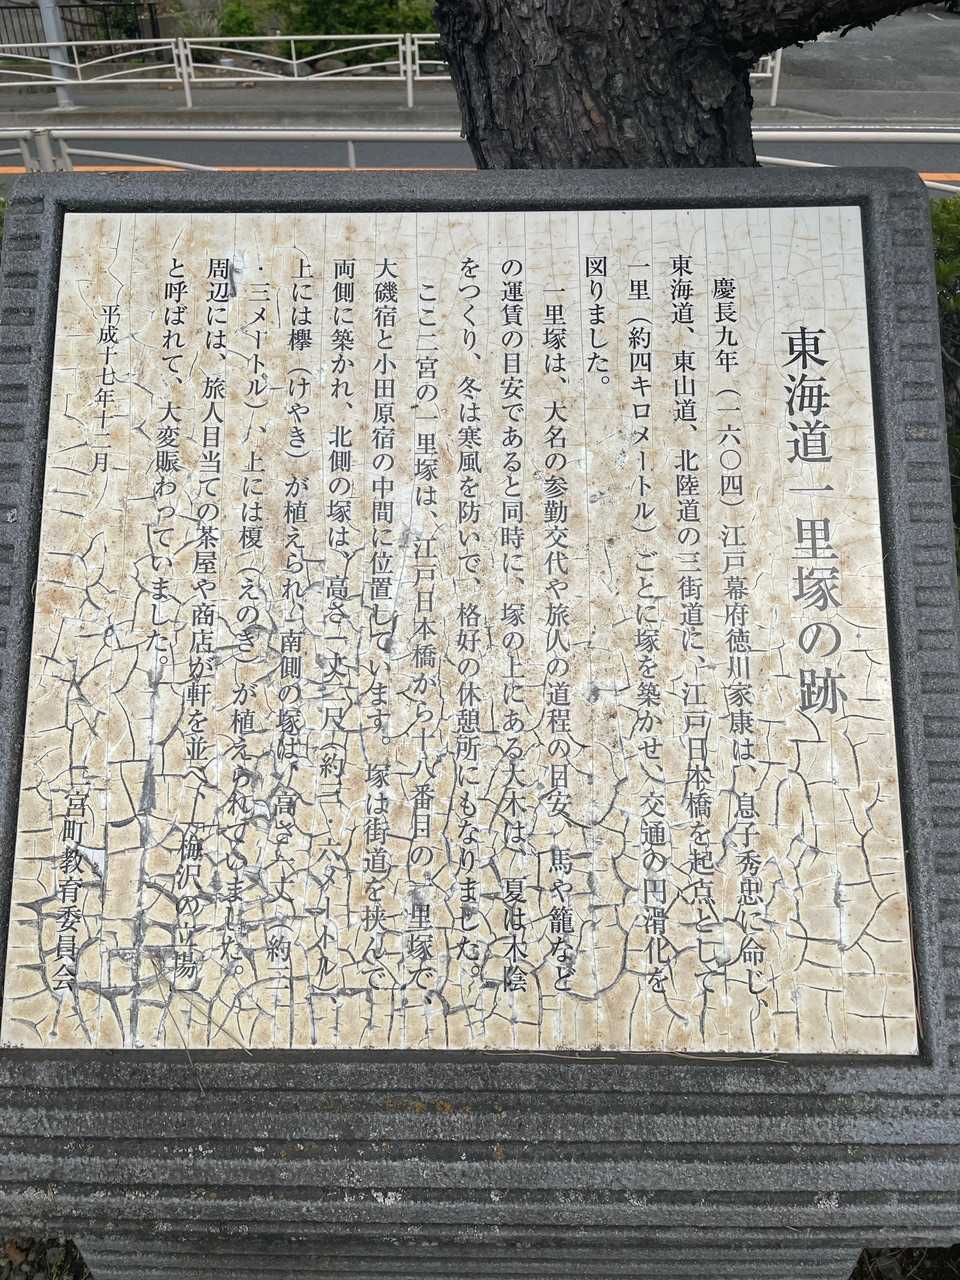 東海道一里塚の跡
慶長九年（一六〇四）江戸幕府徳川家康は、息子秀忠に命じ、
東海道、東山道、北陸道の三街道に、江戸日本橋を起点として
一里（約四キロメートル）ごとに塚を築かせ、交通の円滑化を
図りました。
一里塚は、大名の参勤交代や旅人の道程の目安、馬や籠など
の運賃の目安であると同時に、塚の上にある大木は、夏は木陰
をつくり、冬は寒風を防いで、格好の休憩所にもなりました。
ここ二宮の一里塚は、江戸日本橋から十八番目の一里塚で、
大磯宿と小田原宿の中間に位置しています。塚は街道を挟んで
両側に築かれ、北側の塚は、高さ一丈二尺（約三・六メートル）、
上には欅（けやき）が植えられ、南側の塚は、高さ一丈（約三
・三メートル）、上には榎（えのき）が植えられていました。
周辺には、旅人目当ての茶屋や商店が軒を並べ、「梅沢の立場」
と呼ばれて、大変賑わっていました。
平成十七年十二月
二宮町教育委員会